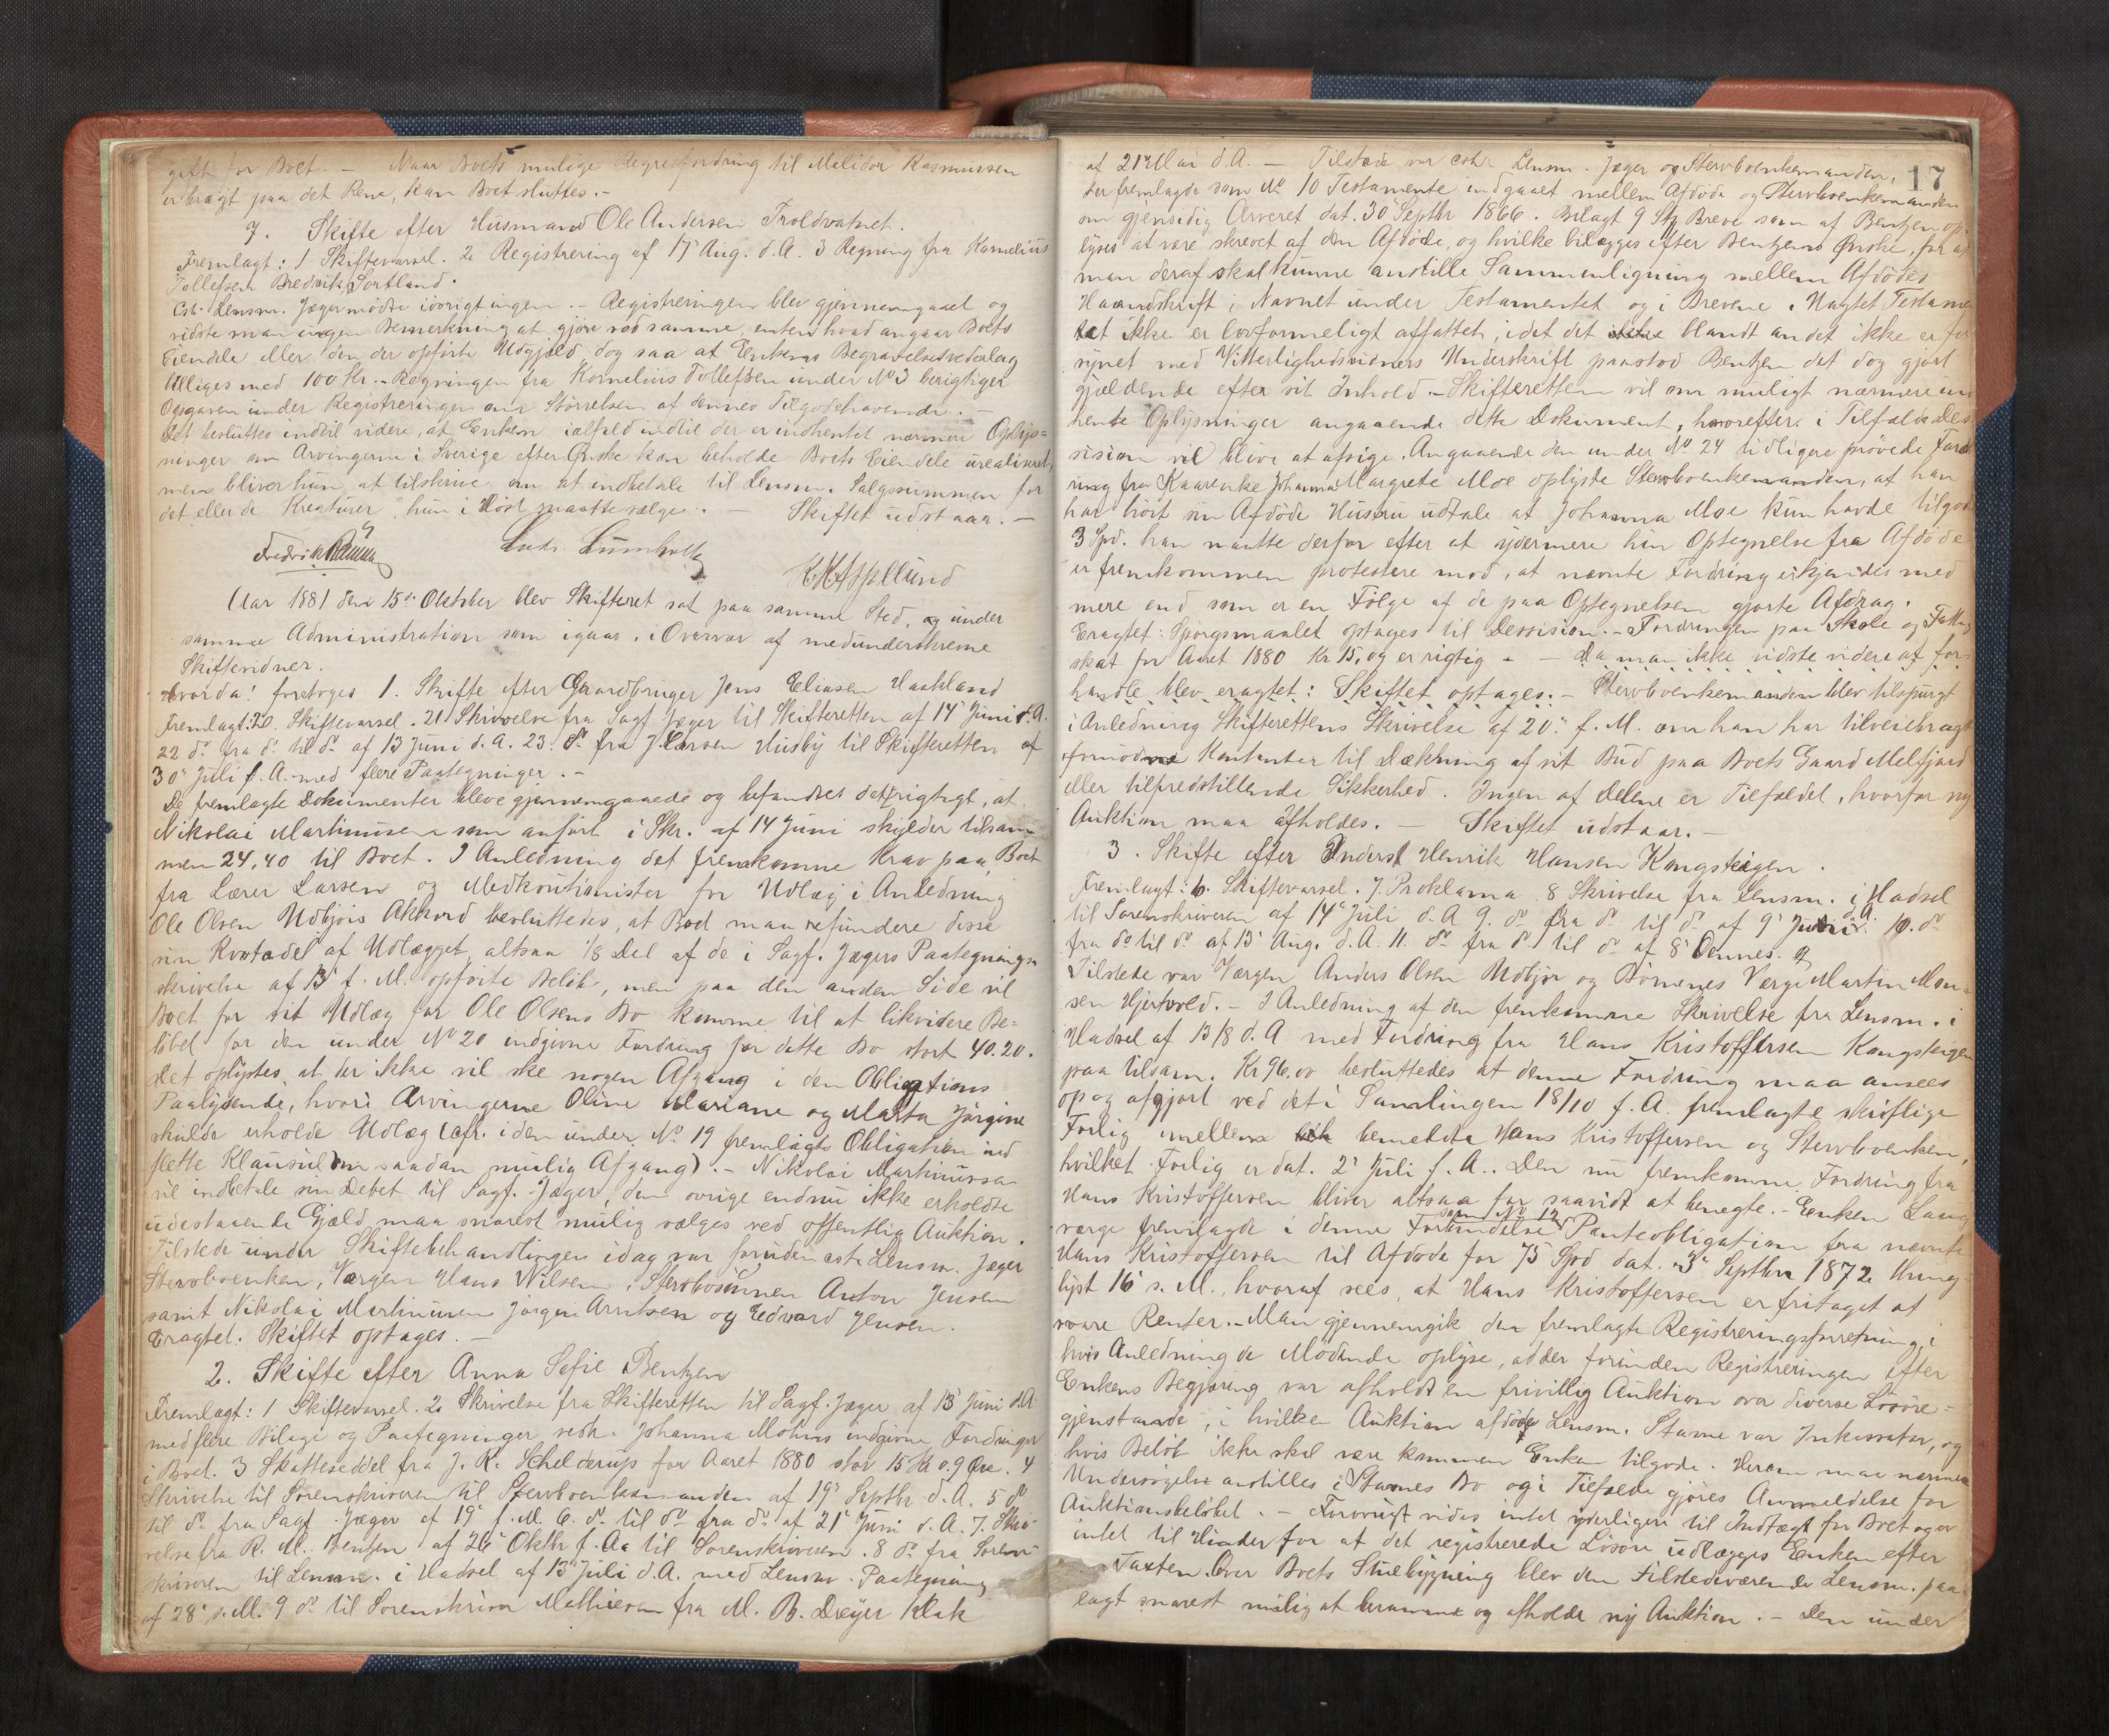 gift for Boet. – Naar Boets mulige Regresfordring til Melidor Rasmussen
er bragt paa det Rene, kan Boet sluttes. –
7. Skifte efter Husmand Ole Andersen Troldvatnet.
Fremlagt: 1 Skiftevarsel. 2 Registrering af 17' Aug. d.A. 3 Regning fra Kornelius
Tollefsen Bredvik, Sortland.
Cst. Lensm. Jæger mødte iøvrigt ingen. – Registreringen blev gjennemgaaet og
vidste man ingen Bemerkning at gjøre ved samme, enten hvad angaar Boets
Eiendele eller den der opførte Udgjæld dog saa at Enkens Begravelsesvederlag
billiges med 100 Kr. – Regningen fra Kornelius Tollefsen under No 3 berigtiger
Opgaven under Registreringen om Størrelsen af dennes Tilgodehavende. –
Det besluttes indtil videre, at Enken ialfald indtil der er indhentet nærmere Oplys=
ninger om Arvingerne i Sverige efter Ønske kan beholde Boets Eiendele urealiseret,
men bliver hun at tilskrive om at indbetale til Lensm. Salgssummen for
det eller de Kreaturer hun i Høst maatte sælge. – Skiftet udstaar. –
Fredrik
Ludv. Lumholtz
K. K. Asplund
Aar 1881 den 15de Oktober blev Skifteret sat paa samme Sted, og under
samme Administration som igaar, i Overvær af medunderskrevne
Skiftevidner.
Hvorda: foretoges 1. Skifte efter Gaardbruger Jens Eliasen Haakland
Fremlagt: 20. Skiftevarsel. 21 Skrivelse fra Sagf. Jæger til Skifteretten af 14' Juni d.A.
22 do fra do til do af 13 Juni d.A. 23. do fra J. Larsen Husby til Skifteretten af
30' Juli f.A. med flere Paategninger. –
De fremlagte Dokumenter bleve gjennemgaaede og befandtes det rigtigt, at
Nikolai Martinusen som anført i Skr. af 14 Juni skylder tilsam
men 24,40 til Boet. I Anledning det fremkomne Krav paa Boet
fra Lærer Larsen og Medkautionister for Udlæg i Anledning
Ole Olsen Udbjørs Akkord besluttedes, at Boet maa refundere disse
sin Kvotadel af Udlægget, altsaa 1/8 Del af de i Sagf. Jægers Paategnings
skrivelse af 13' f.M. opførte Beløb, men paa den anden Side vil
Boet for sit Udlæg for Ole Olsens Bo komme til at likvidere Be=
løbet for den under No 20 indgivne Fordring for dette Bo stort 40.20.
Det oplystes, at der ikke vil ske nogen Afgang i den Obligations
Paalydende, hvori Arvingerne Oline Mariane og Marta Jørgine
skulde erholde Udlæg (cfr. i den under No 19 fremlagte Obligation ind
flette Klausul om saadan mulig Afgang). – Nikolai Martinussen
vil indbetale sin Debet til Sagf. Jæger, den øvrige endnu ikke erholdte
udestaaende Gjæld maa snarest mulig sælges ved offentlig Auktion.
Tilstede under Skiftebehandlingen idag var foruden cst. Lensm. Jæger
Stervboenken, Værgen Hans Nilsen, Stervbosønnen Anton Jensen
samt Nikolai Martinusen Jørgen Arntsen og Edvard Jensen.
Eragtet. Skiftet optages. –
2. Skifte efter Anna Sofie Bentzen
Fremlagt: 1 Skiftevarsel. 2 Skrivelse fra Skifteretten til Sagf. Jæger af 13' Juni d.A.
med flere Bilage og Paategninger vedk. Johanna Mohns indgivne Fordringer
i Boet. 3 Skatteseddel fra J. R. Schelderup for Aaret 1880 stor 15 Kr 0.9 Øre. 4
Skrivelse til Sorenskriveren til Stervboenkemanden af 19' Septbr d.A. 5 do
til do fra Sagf. Jæger af 19' f.M. 6. do til do fra do af 21' Juni d.A. 7. Skri
velse fra R. M. Bentzen af 26 Oktbr f.Aa til Sorenskriveren. 8 do fra Soren=
skriveren til Lensm. i Hadsel af 13' Juli d.A. med Lensm. Paategning
af 28' s.M. 9 do til Sorenskriver Mathiesen fra M. B. Dreyer Klak
17
af 21' Mai d.A. – Tilstede var cst. Lensm. Jæger og Stervboenkemanden,
der fremlagde som No 10 Testamente indgaaet mellem Afdøde og Stervboenkemanden
om gjensidig Arveret dat. 30' Septbr 1866. Bilagt 9 Stk Breve som af Bentzen op=
lyses at være skrevet af den Afdøde, og hvilke bilægges efter Bentzens Ønske, for at
man deraf skal kunne anstille Sammenligning mellem Afdødes
Haandskrift i Navnet under Testamentet og i Brevene. Uagtet Testamen
tet ikke er lovformeligt affattet, idet det blandt andet ikke er for
synet med Vitterlighedsvidners Underskrift paastod Bentzen det dog gjort
gjældende efter sit Inhold. – Skifteretten vil om muligt nærmere ind
hente Oplysninger angaaende dette Dokument, hvorefter i Tilfælde Des
sision vil blive at afsige. Angaaende den under No 24 tidligere prøvede Ford
ring fra Kaarenke Johanna Margrete Moe oplyste Stervboenkemanden, at han
har hørt sin Afdøde Hustru udtale at Johanna Moe kun havde tilgode
3 Spd. han maatte derfor efter at ydermere hin Optegnelse fra Afdøde
er fremkommen protestere mod, at nævnte Fordring erkjendes med
mere end som er en Følge af de paa Optegnelsen gjorte Afdrag.
Eragtet: Spørgsmaalet optages til Dessision. – Fordringen paa Skole og Fattig
skat for Aaret 1880 Kr 15, og er rigtig. – Da man ikke vidste videre at for=
handle blev eragtet: Skiftet optages. – Stervboenkemanden blev tilspurgt
i Anledning Skifterettens Skrivelse af 20' f.M. om han har tilveiebragt
fornødne Kontanter til Dækning af sit Bud paa Boets Gaard Melfjord
eller tilfredstillende Sikkerhed. Ingen af Delene er Tilfældet, hvorfor ny
Auktion maa afholdes. – Skiftet udstaar. –
3. Skifte efter Inderst Henrik Hansen Kongsteigen.
Fremlagt: 6. Skiftevarsel. 7. Proklama. 8 Skrivelse fra Lensm. i Hadsel
til Sorenskriveren af 14' Juli d.A. 9. do fra do til do af 9' Juni d.A. 10. do
fra do til do af 13' Aug. d.A. 11. do fra do til do af 8' Dennes.
Tilstede var Værgen Anders Olsen Udbjør og Børnenes Værge Martin Mon=
sen Hjertvold. – I Anledning af den fremkomne Skrivelse fra Lensm. i
Hadsel af 13/8 d.A med Fordring fra Hans Kristoffersen Kongsteigen
paa tilsam. Kr 96.00 besluttedes at denne Fordring maa ansees
op og afgjort ved det i Samlingen 18/10 f.A. fremlagte skriftlige
Forlig mellem bemeldte Hans Kristoffersen og Stervboenken,
hvilket Forlig er dat. 2' Juli f.A.. Den nu fremkomne Fordring fra
Hans Kristoffersen bliver altsaa for saavidt at benegte. – Enken Laug
værge fremlagde i denne Forbindelse som No 12 Panteobligation fra nævnte
Hans Kristoffersen til Afdøde for 75 Spd dat. 3' Septbr 1872 thing=
lyst 16' s.M., hvoraf sees, at Hans Kristoffersen er fritaget at
svare Renter. – Man gjennemgik den fremlagte Registreringsforretning, i
hvis Anledning de Mødende oplyse, at der forinden Registreringen efter
Enkens Begjæring var afholdt en frivillig Auktion over diverse Løsøre=
gjenstande, i hvilken Auktion afdøde Lensm. Stavne var Inkassator, og
hvis Beløb ikke skal være kommen Enken tilgode. Herom maa nærmere
Undersøgelse anstilles i Stavnes Bo og i Tilfælde gjøres Anmeldelse for
Auktionsbeløbet. – Forøvrigt vides intet yderligere til Indtægt for Boet og er
intet til Hinder for at det registrerede Løsøre udlægges Enken efter
Taxten. Over Boets Stuebygning blev den tilstedeværende Lensm. paa=
lagt snarest mulig at beramme og afholde ny Auktion. – Den under